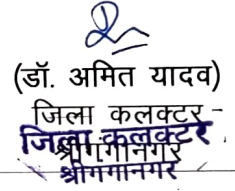 (डॉ. अमित यादव)
जिला कलक्टर
श्रीगंगानगर
जिला कलक्टर
श्रीगंगानगर